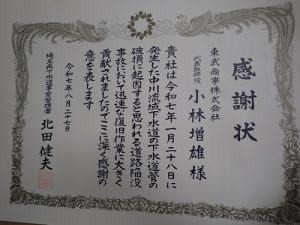 感謝状
東武商事株式会社
代表取締役
小林増雄様
貴社は令和七年一月二十八日に
発生した中川流域下水道の下水道管の
破損に起因すると思われる道路陥没
事故において迅速な復旧作業に大きく
貢献されましたのでここに深く感謝の
意を表します
令和七年八月二十七日
埼玉県下水道事業管理者
北田健夫